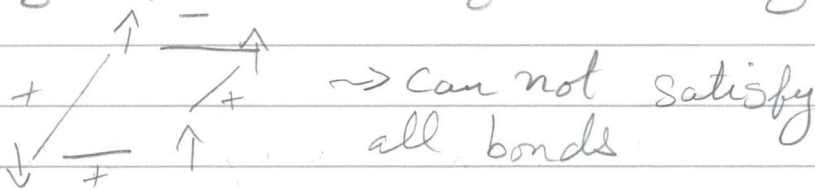 ↑ − ↑
+ + ~> Can not satisfy
↓ + ↑ all bonds